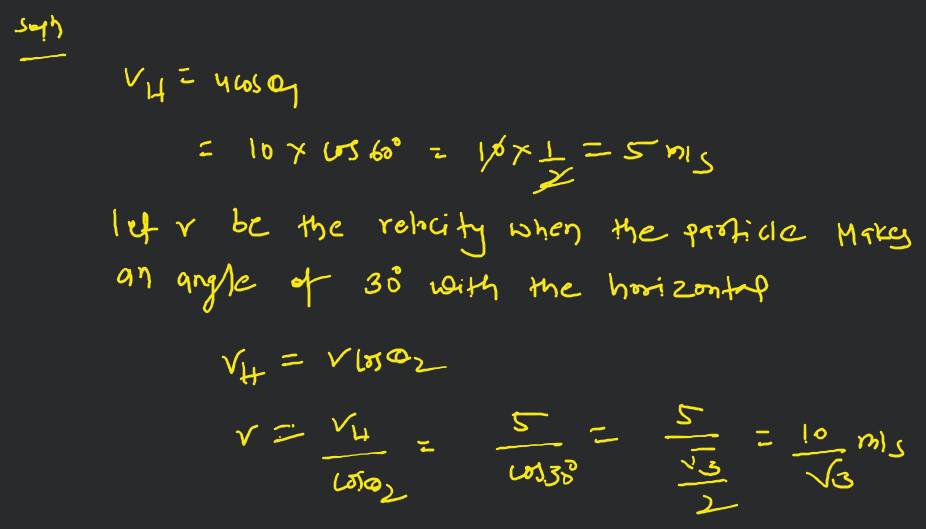 Soln
V_H = u cos θ_1
= 10 × cos 60° = 10 × 1/2 = 5 m/s
let v be the velocity when the particle makes
an angle of 30° with the horizontal
V_H = v cos θ_2
v = V_H / cos θ_2 = 5 / cos 30° = 5 / (√3/2) = 10/√3 m/s